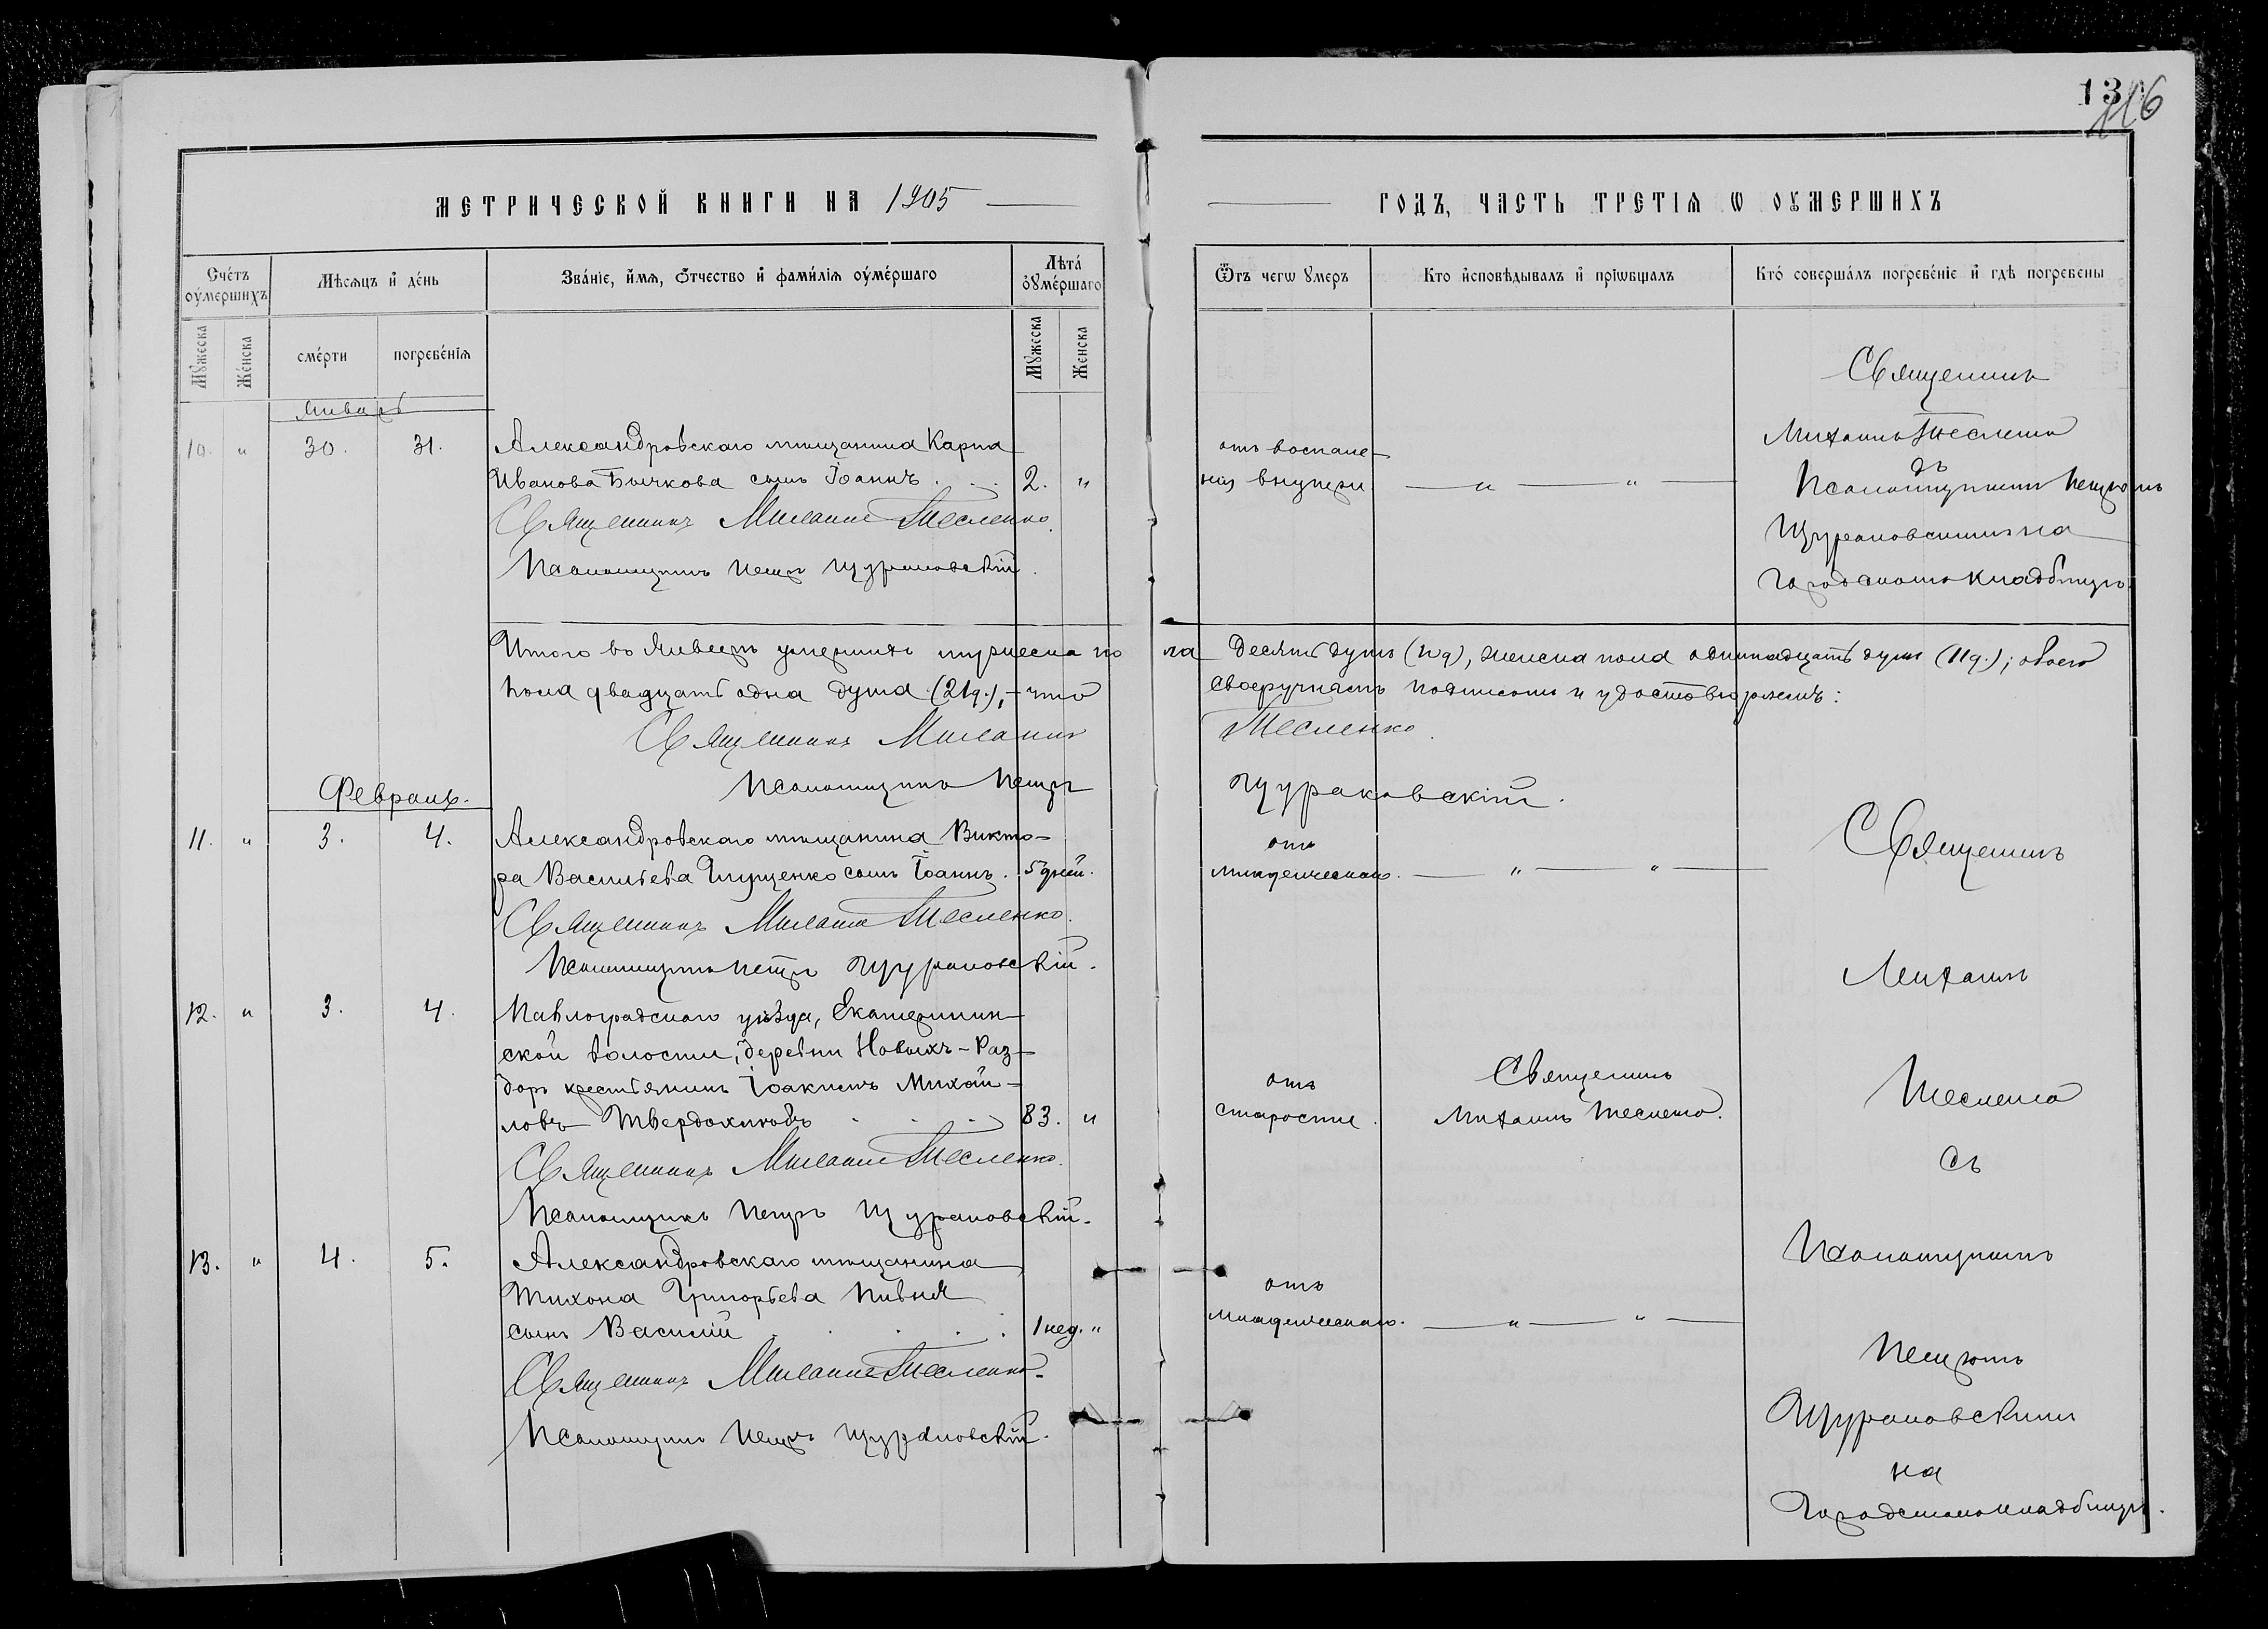 13
116
МЕТРИЧЕСКОЙ КНИГИ НА 1905
ГОДЪ, ЧАСТЬ ТРЕТІЯ Ѡ ОУМЕРШИХЪ
Счётъ оумершихъ
Мѣсяцъ и день
Званіе, имя, отчество и фамилія оумершаго
Лѣта оумершаго
Ѿтъ чегѡ умеръ
Кто исповѣдывалъ и пріѡбщалъ
Кто совершалъ погребеніе и гдѣ погребены
Мужеска
Женска
смерти
погребенія
Мужеска
Женска
Январь
10. " 30. 31. Александровскаго мѣщанина Карпа
Иванова Бычкова сынъ Іоаннъ. 2. "
Священникъ Михаилъ Тесленко.
Псаломщикъ Петръ Щураковскій.
отъ воспале-
нія внутри
Священникъ
Михаилъ Тесленко
съ
Псаломщикомъ Петромъ
Щураковскимъ на
городскомъ кладбищѣ.
Итого въ Январѣ умершихъ мужеска по
ла десять душъ (10 д), женска пола одиннадцать душъ (11 д.); обоего
пола двадцать одна душа (21 д.), - что
своеручнымъ подписомъ и удостовѣряемъ:
Священникъ Михаилъ
Тесленко.
Псаломщикъ Петръ
Щураковскій.
Февраль.
11. " 3. 4. Александровскаго мѣщанина Викто-
ра Васильева Глущенко сынъ Іоаннъ. 5 дней.
Священникъ Михаилъ Тесленко.
Псаломщикъ Петръ Щураковскій.
отъ
младенческаго.
12. " 3. 4. Павлоградскаго уѣзда, Екатеринин-
ской волости, деревни Новыхъ-Раз-
доръ крестьянинъ Іоакимъ Михай-
ловъ Твердохлѣбъ 83. "
Священникъ Михаилъ Тесленко.
Псаломщикъ Петръ Щураковскій.
отъ
старости.
Священникъ
Михаилъ Тесленко.
13. " 4. 5. Александровскаго мѣщанина
Тихона Григорьева Пивня
сынъ Василій 1 нед. "
Священникъ Михаилъ Тесленко.
Псаломщикъ Петръ Щураковскій.
отъ
младенческаго.
Священникъ
Михаилъ
Тесленко
съ
Псаломщикомъ
Петромъ
Щураковскимъ
на
городскомъ кладбищѣ.